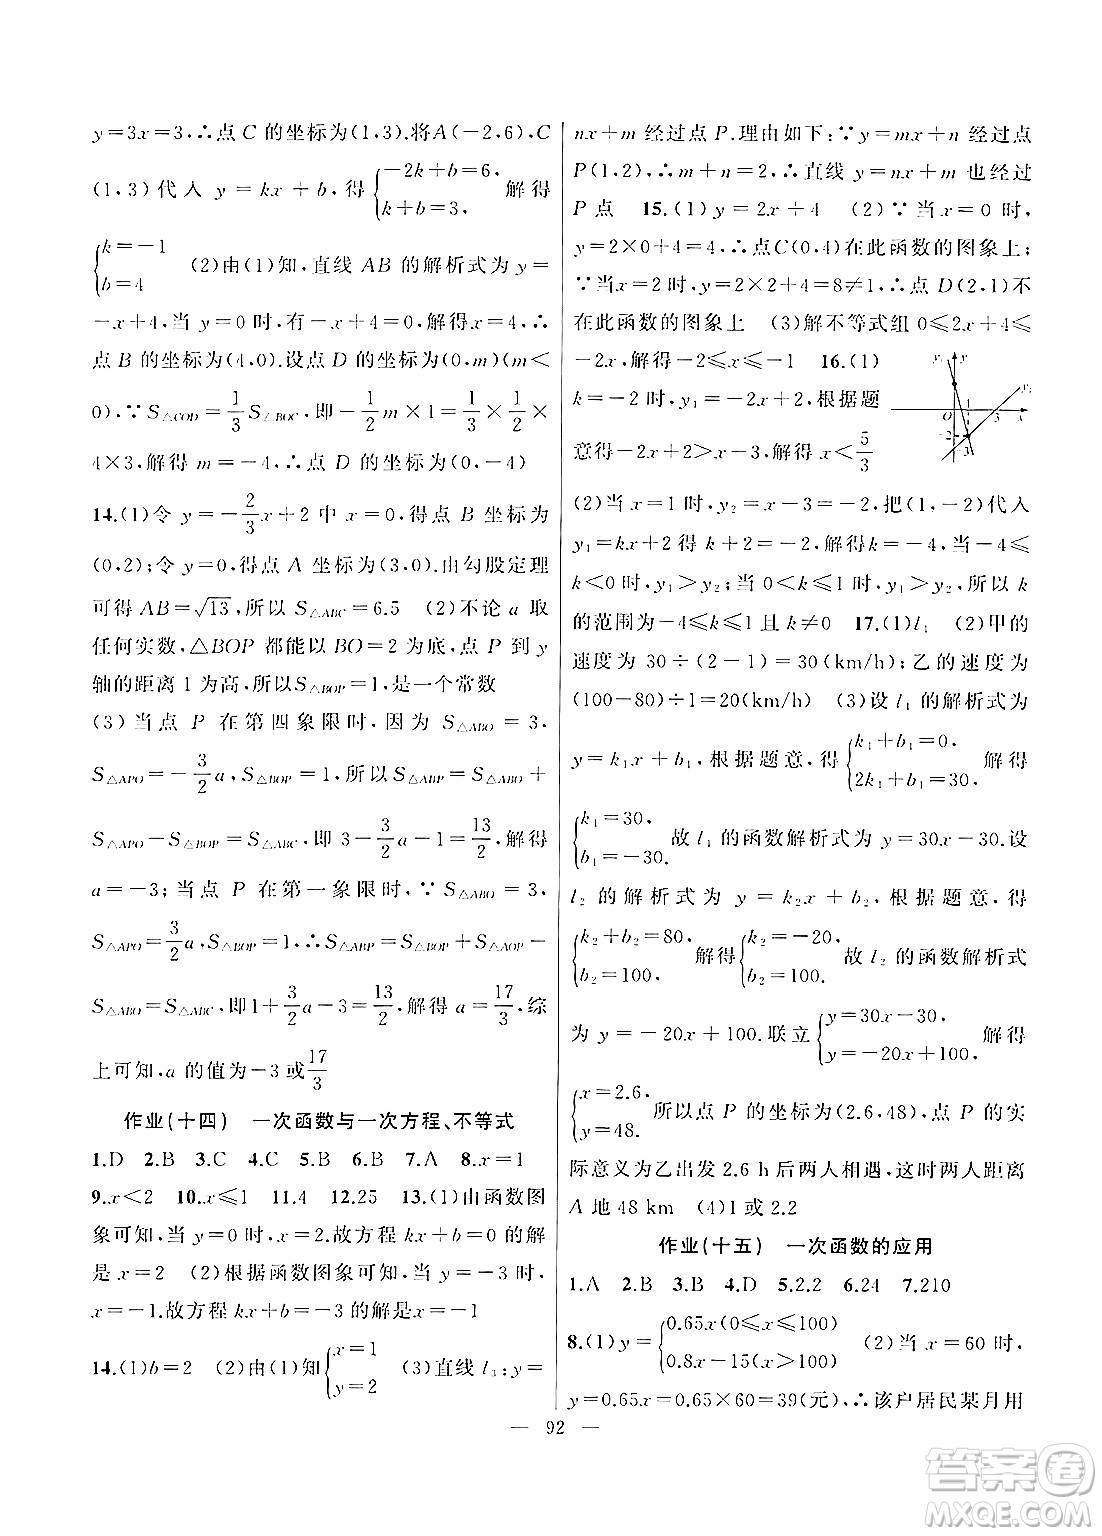 y=3x=3,∴点 C 的坐标为(1,3).将A(-2,6),C
(1,3)代入 y=kx+b,得{-2k+b=6, k+b=3, 解得
{k=-1 b=4 (2)由(1)知,直线 AB 的解析式为 y=
-x+4,当 y=0 时,有-x+4=0,解得x=4,∴
点 B 的坐标为(4,0).设点 D 的坐标为(0,m)(m<
0),∵S△COD=1/3S△BOC,即-1/2m×1=1/3×1/2×
4×3,解得 m=-4,∴点 D 的坐标为(0,-4)
14.(1)令 y=-2/3x+2 中 x=0,得点 B 坐标为
(0,2);令 y=0,得点 A 坐标为(3,0).由勾股定理
可得 AB=√13,所以 S△ABC=6.5 (2)不论 a 取
任何实数,△BOP 都能以 BO=2 为底,点 P 到 y
轴的距离 1 为高,所以S△BOP=1,是一个常数
(3)当点 P 在第四象限时,因为 S△ABO=3,
S△APO=-3/2a,S△BOP=1,所以 S△ABP=S△ABO+
S△APO-S△BOP=S△ABC,即 3-3/2a-1=13/2,解得
a=-3;当点 P 在第一象限时,∵S△ABO=3,
S△APO=3/2a,S△BOP=1,∴S△ABP=S△BOP+S△AOP-
S△ABO=S△ABC,即1+3/2a-3=13/2,解得 a=17/3,综
上可知,a 的值为-3或17/3
作业(十四) 一次函数与一次方程、不等式
1.D 2.B 3.C 4.C 5.B 6.B 7.A 8.x=1
9.x<2 10.x≤1 11.4 12.25 13.(1)由函数图
象可知,当 y=0 时,x=2.故方程 kx+b=0 的解
是 x=2 (2)根据函数图象可知,当 y=-3 时,
x=-1.故方程 kx+b=-3 的解是x=-1
14.(1)b=2 (2)由(1)知{x=1 y=2 (3)直线 l3:y=
nx+m 经过点 P.理由如下:∵y=mx+n 经过点
P(1,2),∴m+n=2,∴直线 y=nx+m 也经过
P 点 15.(1)y=2x+4 (2)∵当 x=0 时,
y=2×0+4=4,∴点C(0,4)在此函数的图象上;
∵当x=2时,y=2×2+4=8≠1,∴点 D(2,1)不
在此函数的图象上 (3)解不等式组 0≤2x+4≤
-2x,解得-2≤x≤-1 16.(1)
k=-2时,y1=-2x+2,根据题
意得-2x+2>x-3,解得 x<5/3
(2)当 x=1 时,y2=x-3=-2,把(1,-2)代入
y1=kx+2得 k+2=-2,解得k=-4,当-4≤
k<0 时,y1>y2;当 0<k≤1 时,y1>y2,所以 k
的范围为-4≤k≤1 且 k≠0 17.(1)l1 (2)甲的
速度为 30÷(2-1)=30(km/h);乙的速度为
(100-80)÷1=20(km/h) (3)设 l1 的解析式为
y=k1x+b1,根据题意,得{k1+b1=0, 2k1+b1=30, 解得
{k1=30, b1=-30. 故 l1 的函数解析式为 y=30x-30.设
l2 的解析式为 y=k2x+b2,根据题意,得
{k2+b2=80, b2=100, 解得{k2=-20, b2=100. 故 l2 的函数解析式
为 y=-20x+100.联立{y=30x-30, y=-20x+100, 解得
{x=2.6, y=48. 所以点 P 的坐标为(2.6,48),点 P 的实
际意义为乙出发 2.6 h 后两人相遇,这时两人距离
A 地 48 km (4)1 或 2.2
作业(十五) 一次函数的应用
1.A 2.B 3.B 4.D 5.2.2 6.24 7.210
8.(1)y={0.65x(0≤x≤100) 0.8x-15(x>100) (2)当 x=60 时,
y=0.65x=0.65×60=39(元),∴该户居民某月用
— 92 —
答案圈
MXQE.COM